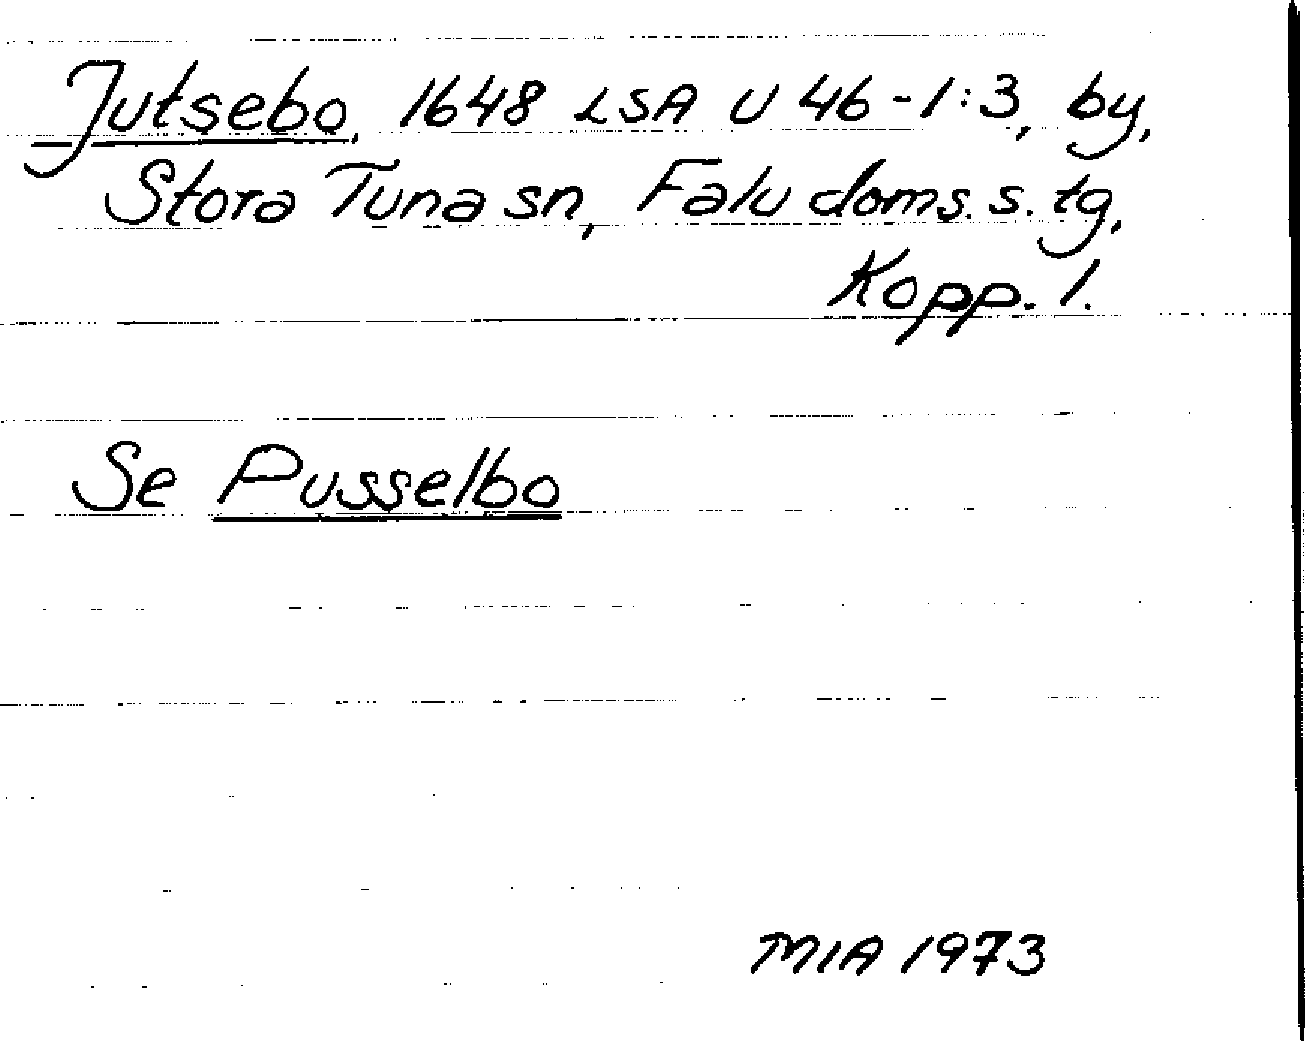 Jutsebo, 1648 LSA U 46-1:3, by,
Stora Tuna sn, Falu doms. s. tg,
Kopp. l.
Se Pusselbo
MIA 1973